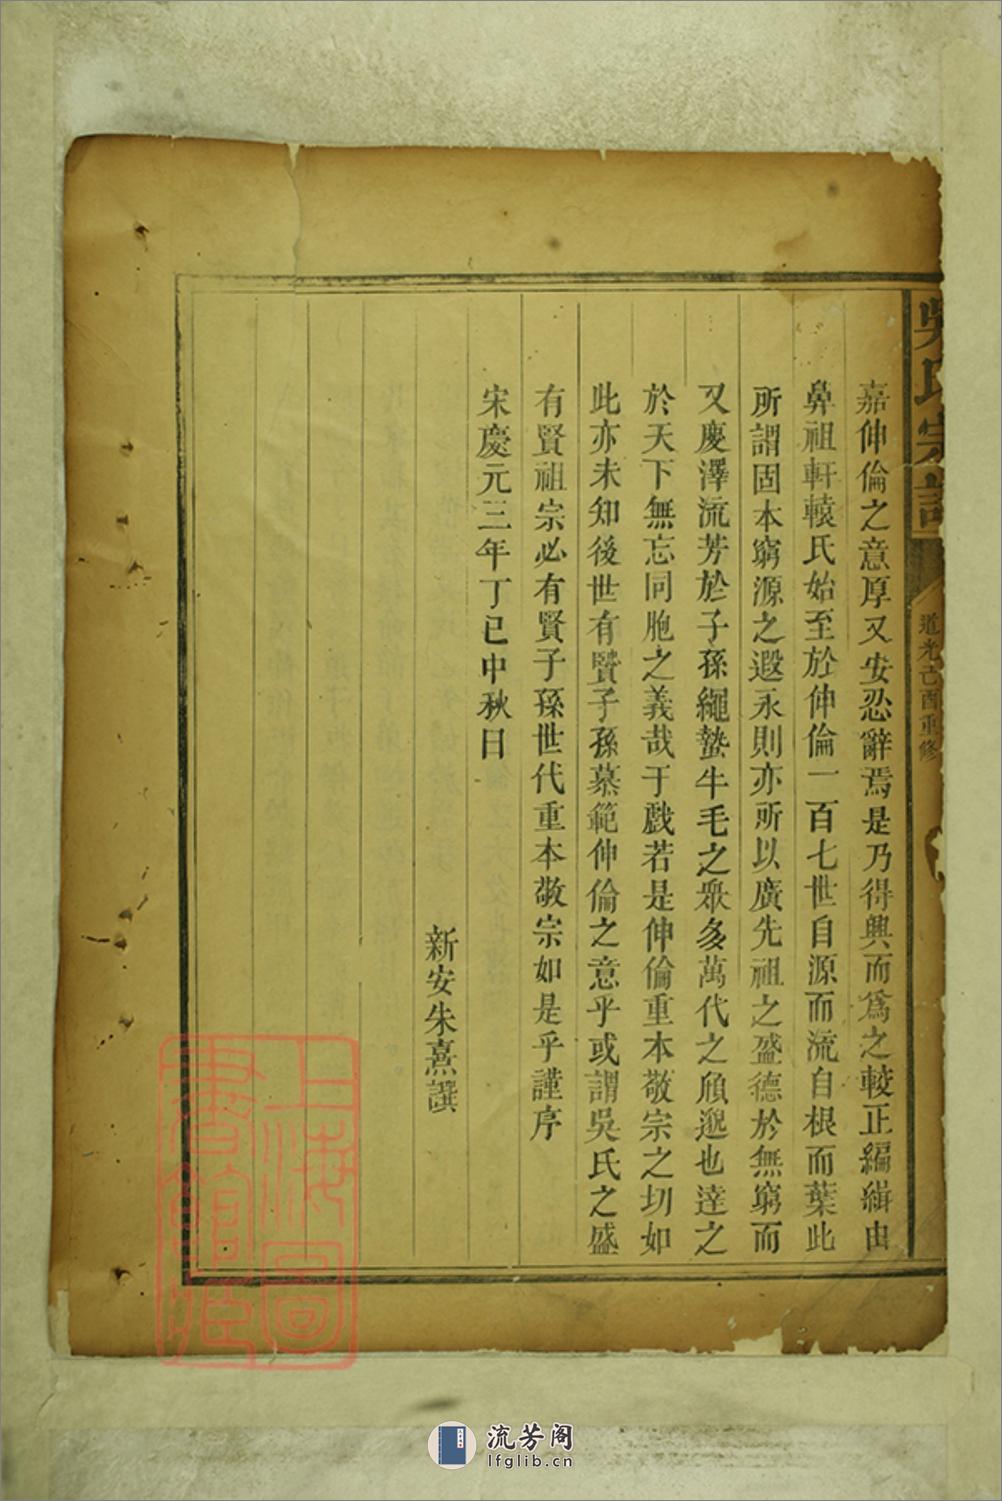 吳氏宗譜
道光己酉重修
嘉仲倫之意厚又安忍辭焉是乃得興而爲之較正編緝由
鼻祖軒轅氏始至於仲倫一百七世自源而流自根而葉此
所謂固本窮源之遐永則亦所以廣先祖之盛德於無窮而
又慶澤流芳於子孫繩蟄牛毛之眾多萬代之頎邈也達之
於天下無忘同胞之義哉于戲若是仲倫重本敬宗之切如
此亦未知後世有賢子孫慕範仲倫之意乎或謂吳氏之盛
有賢祖宗必有賢子孫世代重本敬宗如是乎謹序
宋慶元三年丁巳中秋日
新安朱熹譔
上海圖
書館藏
流芳阁
lfglib.cn